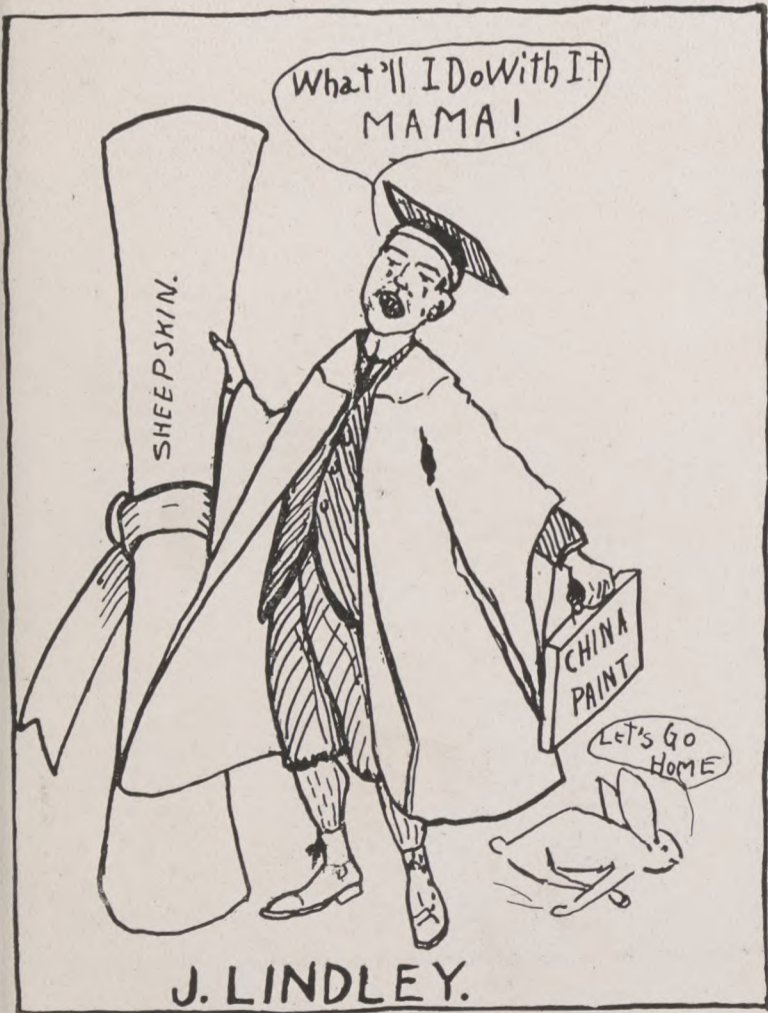 What'll I Do With It
MAMA!
SHEEPSKIN.
CHINA
PAINT
LET'S GO
HOME
J. LINDLEY.